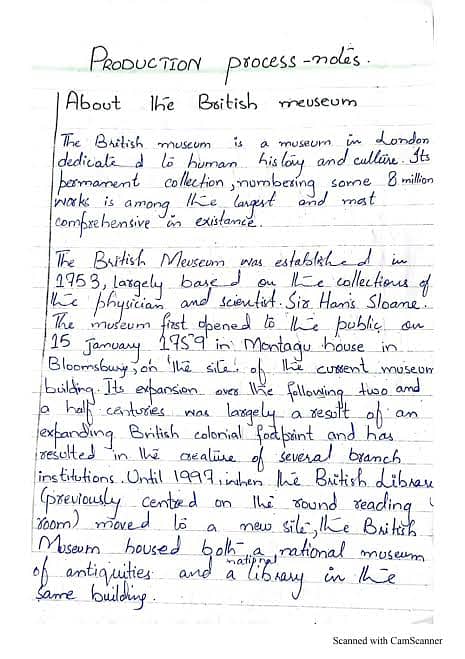 PRODUCTION process-notes.
About the British meuseum
The British museum is a museum in London
dedicate d to human history and culture. Its
permament collection, numbering some 8 million
works is among the largest and most
comprehensive in existance.
The British Meuseum was established in
1753, largely base d on the collections of
the physician and scientist. Sir Hans Sloane.
The museum first opened to the public on
15 January 1759 in Montagu house in
Bloomsbury, on the site of the current museum
building. Its expansion over the following two and
a half centuries was largely a result of an
expanding British colonial footprint and has
resulted in the creature of several branch
institutions. Until 1997, when the British Library
(previously centred on the round reading
room) moved to a new site, the British
Museum housed both a national museum
of antiquities and a national library in the
same building.
Scanned with CamScanner